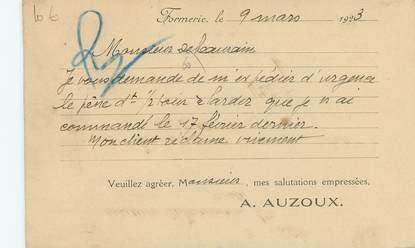 Formerie, le 9 mars 1923
Monsieur
Je vous demande de m'expédier d'urgence
le pêne dt tour à larder que je v ai
commandé le 17 février dernier.
Mon client réclame vivement
Veuillez agréer, Monsieur, mes salutations empressées,
A. AUZOUX.